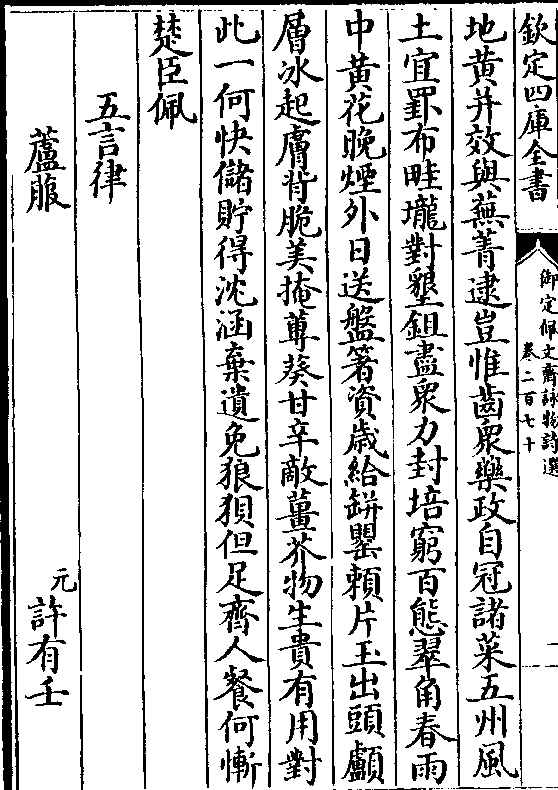 欽定四庫全書
御定佩文齋詠物詩選
卷二百七十
一
地黄并效與蕪菁逮豈惟齒衆藥政自冠諸菜五州風
土宜罫布畦壠對墾鉏盡衆力封培窮百態翠角春雨
中黄花晚煙外日送盤箸資歳給缾罌頼片玉出頭顱
層冰起膚背脆美掩蓴葵甘辛敵薑芥物生貴有用對
此一何快儲貯得沈涵棄遺免狼狽但足齊人餐何慚
楚臣佩
五言律
蘆菔
元許有壬